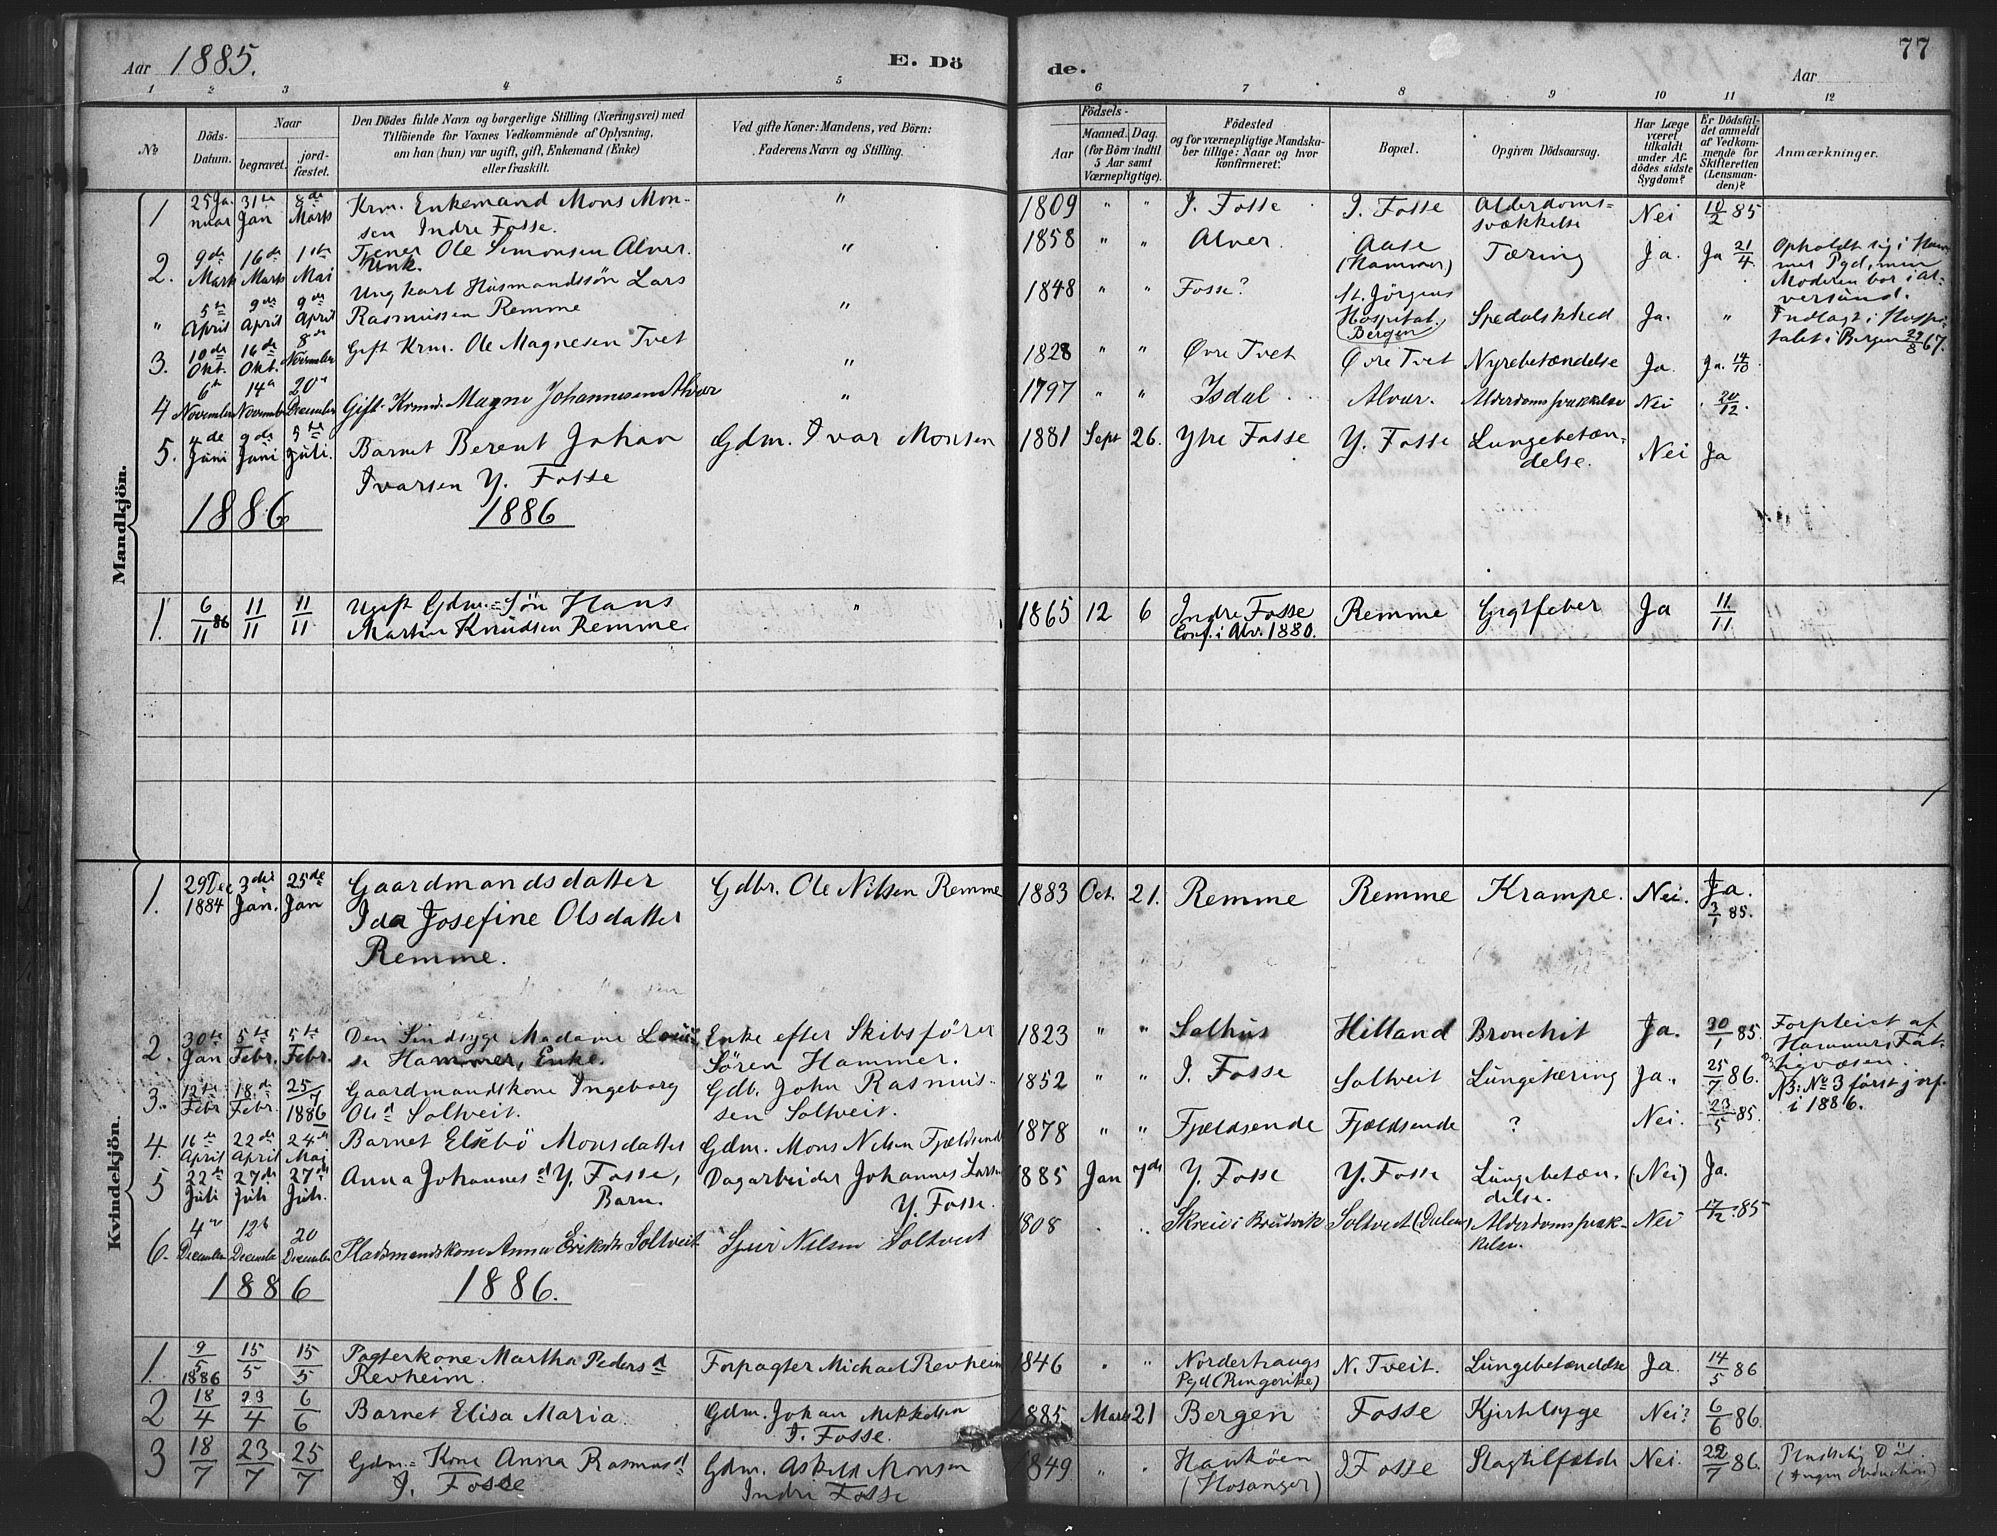 Aar 1885.
E. Dö
de.
Aar
77
1 2 3 4 5 6 7 8 9 10 11 12
No
Döds-
Datum.
Naar
begravet.
jord-
fæstet.
Den Dödes fulde Navn og borgerlige Stilling (Næringsvei) med
Tilföiende for Voxnes Vedkommende af Oplysning,
om han (hun) var ugift, gift, Enkemand (Enke)
eller fraskilt.
Ved gifte Koner: Mandens, ved Börn:
Faderens Navn og Stilling.
Födsels-
Aar
Maaned. Dag.
(for Börn indtil
5 Aar samt
Værnepligtige).
Födested
og for værnepligtige Mandska-
ber tillige: Naar og hvor
konfirmeret.
Bopæl.
Opgiven Dödsaarsag.
Har Læge
været
tilkaldt
under Af-
dödes sidste
Sygdom?
Er Dödsfal-
det anmeldt
af Vedkom-
mende for
Skifteretten
(Lensman-
den)?
Anmærkninger.
Mandkjön.
1 25 Ja-
nuar 31te Jan 8de Marts Krm. Enkemand Mons Mon-
sen Indre Fosse. " 1809 " " I. Fosse I. Fosse Alderdoms=
svækkelse Nei 10/2 85
2. 9de Marts 16de Marts 1ste Mai Tjener Ole Simonsen Alver.
Unk. " 1858 " " Alver. Aase
(Hammer) Tæring Ja. Ja 21/4 Opholdt sig i Ham-
mer Pgd, men
Moderen bor i Al-
versund.
" 5te April 9de April 9de April Ungkarl Husmandssön Lars
Rasmussen Remme " 1848 " " Fosse? St. Jörgens
Hospital.
Bergen Spedalskhed Ja. " Indlagt i Hospi-
talet i Bergen 29/8 67.
3. 10de Okt. 16de Okt. 8de November Gift Krm. Ole Magnesen Tvet " 1828 " " Øvre Tvet Øvre Tvet Nyrebetændelse Ja Ja. 14/10
4 6te November 14de November 20de December Gift Krmd. Magne Johannesen Alver " 1797 " " Isdal Alver. Alderdomssvækkelse Nei 20/12.
5. 4de Juni 9de Juni 5te Juli. Barnet Berent Johan
Ivarsen Y. Fosse Gdm. Ivar Monsen 1881 Sept 26. Ytre Fosse Y. Fosse Lungebetæn-
delse. Nei Ja
1886 1886
1. 6/11 86 11/11 11/11 Ugift Gdm.=Sön Hans
Martin Knudsen Remme. " 1865 12 6 Indre Fosse
Conf. i Alv. 1880. Remme Gigtfeber Ja 11/11
Kvindekjön.
1. 29 Dec 1884 3die Jan. 25de Jan Gaardmandsdatter
Ida Josefine Olsdatter
Remme. Gdbr. Ole Nilsen Remme 1883 Oct. 21. Remme Remme Krampe. Nei. Ja.
3/1 85.
2. 30te Jan 5te Febr. 5te Febr. Den Sindsyge Madame Loui-
se Hammer, Enke. Enke efter Skibsförer
Sören Hammer. 1823 " " Salhus Hilland Bronchit Ja. 30/1 85. Forpleiet af
Hammers Fat-
tigvæsen
3. 12te Febr 18de Febr. 25/7 1886 Gaardmandskone Ingeborg
Olsd Soltveit. Gdb. John Rasmus-
sen Soltveit. 1852 " " I. Fosse Soltveit Lungetæring Ja. 25/7 86. NB: No 3 först jorf.
i 1886.
4. 16de April 22de April 24de Mai Barnet Elsebö Monsdatter Gdm. Mons Nilsen Fjeldsende 1878 " " Fjeldsende Fjeldsende ? Nei. 23/5 85.
5 22de Juli 27de Juli 27de Juli. Anna Johannesd Y. Fosse,
Barn. Dagarbeider Johannes Larsen
Y. Fosse. 1885 Jan 7de Y. Fosse Y. Fosse Lungebetæn-
delse. (Nei) Ja.
6. 4de December 12te December 20 December Anna Eriksdtr Soltveit Nilsen Soltveit 1808 Skreie i Bruvik Soltveit Alderdomssvæk-
kelse. Nei 17/12 85
1886 1886.
1. 9/5 1886 15/5 15/5 Pagterkone Martha Pedersd
Revheim. Forpagter Michael Revheim 1846 " " Norderhaugs
Pgd (Ringerike) N. Tveit. Lungebetændelse Ja. 14/5 86
2 18/4 23/4 6/6 Barnet Elisa Maria Gdm. Johan Mikkelsen
I. Fosse. 1885 Marts 21 Bergen Fosse Kjirtelsyge Nei? 6/6 86.
3 18/7 23/7 25/7 Gdm.= Kone Anna Rasmusd
I. Fosse Gdm. Askild Monsen
Indre Fosse 1849 " " (Hosanger) I Fosse Slagtilfælde Nei. 22/7 86. Pludselig Död.
(Ingen Obduction)